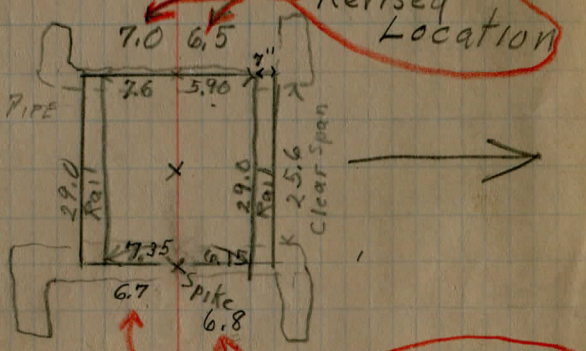 Revised
Location
7.0 6.5
7.6 5.90 7"
PIPE
29.0
Rail
29.0
Rail
25.6
Clear Span
7.35 6.15
Spike
6.7
6.8